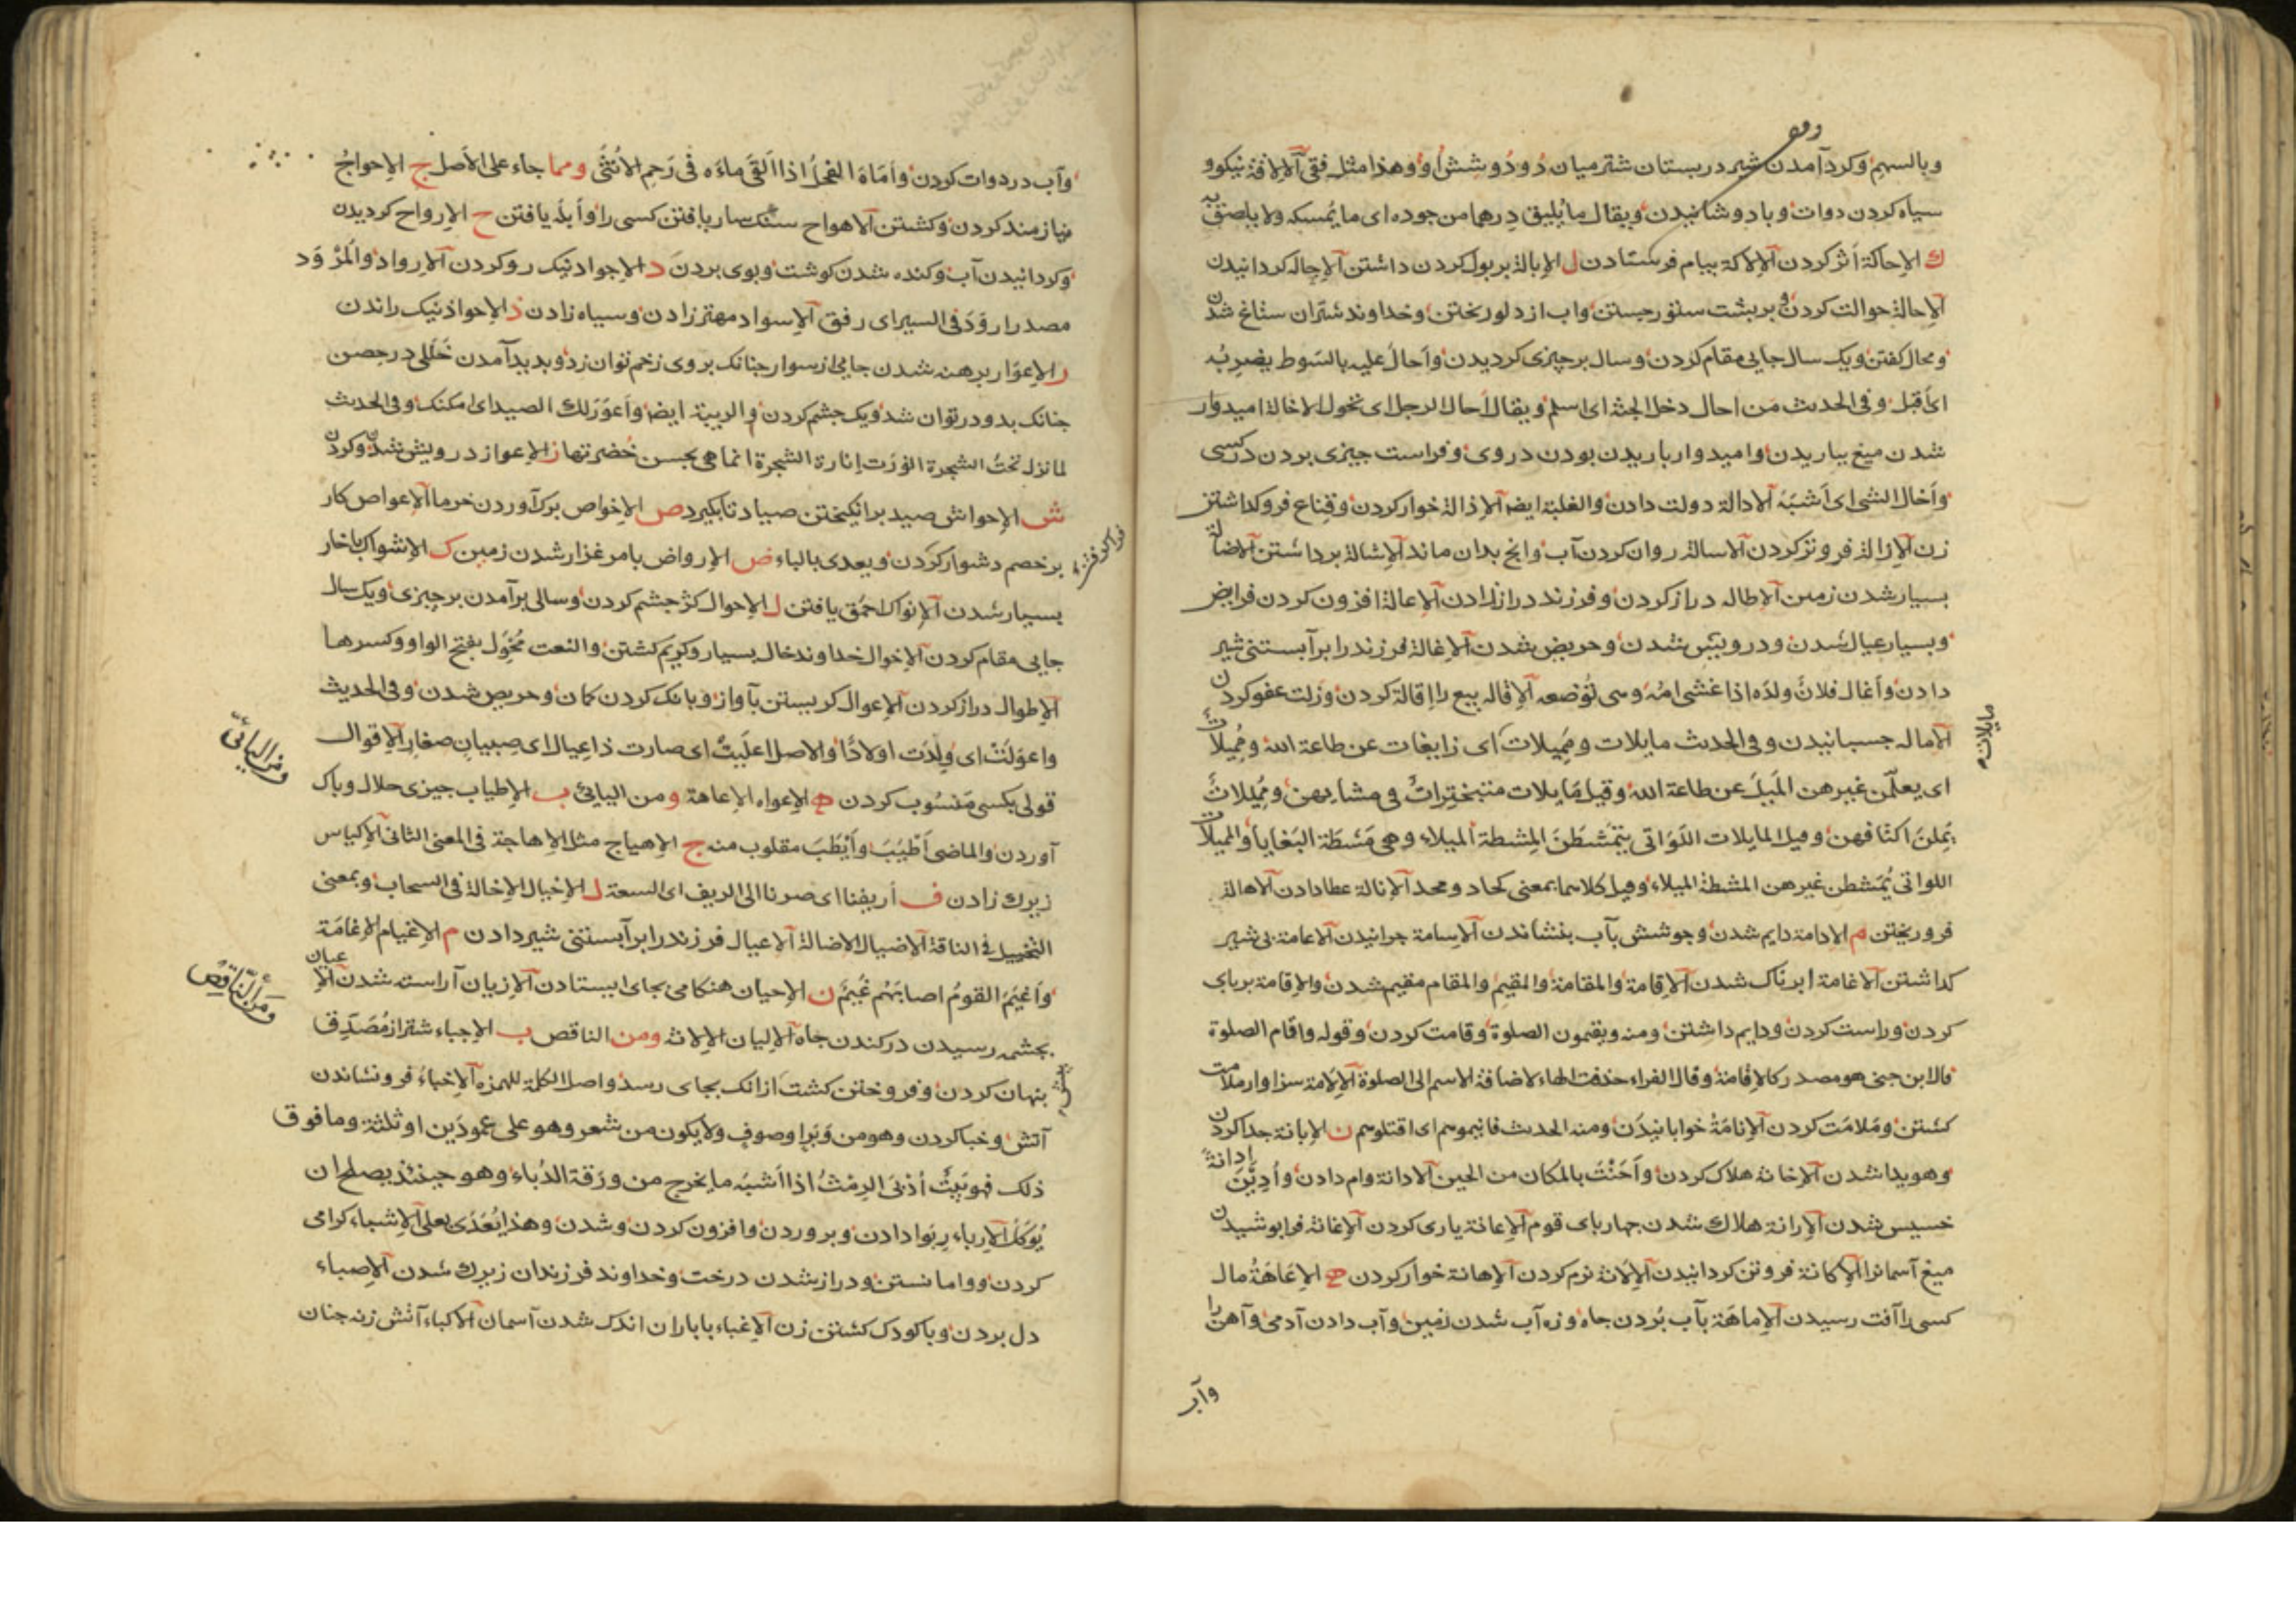 وبالسهم وکرد آمدن شیر در بستان شتر میان دو دوشش او وهذا مثل فقی الالاقة نیکو و
سیاه کردن دوات وبا دوشانیدن ویقال ما یُلیق درهما من جوده ای ما یُمسکه ولا یلصق به
ك الإحاکة أثر کردن الإلاکة پیام فرستادن ل الإبالة بر بول کردن داشتن الإجالة کردانیدن
الإحالة حوالت کردن وبر پشت ستور جستن واب از دلو ریختن وخداوند شتران ستاغ شدن
ومحال کفتن ویک سال جایی مقام کردن وسال بر چیزی کردیدن وأحال علیه بالسوط یضربه
ای أقبل وفی الحدیث من احال دخل الجنة ای اسلم ویقال أحال الرجل ای تحول الاخالة امیدوار
شدن میغ بباریدن وامیدوار باریدن بودن در وی وفراست چیزی بردن در کسی
وأخال الشی ای أشبه الادالة دولت دادن والغلبة ایضا الإذالة خوار کردن وقناع فرو کذاشتن
زن الإزالة فروتر کردن الاسالة روان کردن آب وانچ بدان ماند الإشالة برداشتن الاضالة
بسیار شدن زمین الإطالة دراز کردن وفرزند دراز زادن الإعالة افزون کردن فرایض
وبسیار عیال شدن ودرویش شدن وحریص شدن الإغالة فرزند را بر آبستنی شیر
دادن وأغال فلان ولده اذا غشی امه وهی تُوضعه الإقالة بیع را اقالة کردن وزلت عفو کردن
الامالة جسبانیدن وفی الحدیث مایلات وممیلات ای زایغات عن طاعة الله وممیلات
ای یعلّمن غیرهن المیل عن طاعة الله وقیل مایلات متبخترات فی مشایهن وممیلات
یملن اکتافهن وقیل المایلات اللواتی یتمشطن المشطة المیلاء وهی مشطة البغایا والممیلات
اللواتی یُمشطن غیرهن المشطة المیلاء وقیل کلاهما بمعنی کحاد ومحد الإنالة عطا دادن الاهالة
فرو ریختن م الإدامة دایم شدن وجوشش بآب بنشاندن الاسامة چرانیدن الاعامة بی شیر
کذاشتن الاغامة ابرناک شدن الإقامة والمقامة والمقیم والمقام مقیم شدن والإقامة برپای
کردن وراست کردن ودایم داشتن ومنه ویقیمون الصلوة وقامت کردن وقوله واقام الصلوة
قال ابن جنی هو مصدر کالإقامة وقال الفراء حذفت الهاء لاضافة الاسم الی الصلوة الإلامة سزاوار ملامت
کشتن وملامت کردن الإنامة خوابانیدن ومنه الحدیث فانیموهم ای اقتلوهم ن الإبانة جدا کردن
وهویدا شدن الإخانة هلاک کردن وأحنت بالمکان من الحین الادانة وام دادن وأدین ادانة
خسیس شدن الإرانة هلاک شدن چهار پای قوم الإعانة یاری کردن الإغانة فرا پوشیدن
میغ آسمانرا الإکانة فروتن کردانیدن الإلانة نرم کردن الإهانة خوار کردن ه الإعاهة مال
کسی را آفت رسیدن الإماهة بآب بردن چاه وزه آب شدن زمین وآب دادن آدمی وآهن را
مایلات
وآب
وآب در دوات کردن وأماه الفحل اذا ألقی ماءه فی رحم الأنثی ومما جاء علی الأصل ج الإحواج
نیازمند کردن وکشتن الاهواج سنک سار یافتن کسی را وأبله یافتن ح الإرواح کردیدن
وکردانیدن آب وکنده شدن کوشت وبوی بردن د الإجواد نیک رو کردن الإرواد والمرود
مصدرا رود فی السیر ای رفق الإسواد مهتر زادن وسیاه زادن ذ الإحواذ نیک راندن
ر الإعوار برهنه شدن جایی از سوار چنانک بر وی زخم توان زد وپدید آمدن خللی در حصن
چنانک بدو در توان شد ویک چشم کردن والریبة ایضا وأعور لك الصید ای امکنک وفی الحدیث
لما نزل تحت الشجرة انورت إنارة الشجرة انما هی بحسن خضرتها ز الإعواز درویش شدن وکردن
ش الإحواش صید بر انکیختن صیاد تا بکیرد ص الإخواص برک آوردن خرما الإعواص کار
بر خصم دشوار کردن ویعدی بالباء ض الإرواض با مرغزار شدن زمین ک الإشواک با خار
بسیار شدن الإنواک احمق یافتن ل الإحوال کژ چشم کردن وسالی بر آمدن بر چیزی ویک سال
جایی مقام کردن الإخوال خداوند خال بسیار وکریم کشتن والنعت مخول بفتح الواو وکسرها
الإطوال دراز کردن الإعوال کریستن بآواز وبانک کردن کمان وحریص شدن وفی الحدیث
واعولت ای ولدت اولادا والاصل اعلیت ای صارت ذا عیال ای صبیان صغار الإقوال
قولی بکسی منسوب کردن ه الإعواه الإعاهة ومن الیائی ب الإطیاب چیزی حلال وپاک
آوردن والماضی أطیب وأیطب مقلوب منه ج الإهیاج مثل الإهاجة فی المعنی الثانی الإکیاس
زیرک زادن ف أریفنا ای صرنا الی الریف ای السعة ل الإخیال الإخالة فی السحاب وبمعنی
التخییل فی الناقة الإضیال الإضالة الإعیال فرزند را بر آبستنی شیر دادن م الإغیام الإغامة
وأغیم القوم اصابهم غیم ن الإحیان هنکامی بجای ایستادن الإزیان آراسته شدن الإعیان
بچشمه رسیدن در کندن چاه الإلیان الإلانة ومن الناقص ب الإجباء شتر از مصدق
پنهان کردن وفروختن کشت از آنک بجای رسد واصل الکلمة للهمزه الإخباء فرو نشاندن
آتش وخبا کردن وهو من وبر او صوف ولا یکون من شعر وهو علی عمودین او ثلثة وما فوق
ذلک فهو بیت أدبی الرمث اذا أشبه ما یخرج من ورقة الدباء وهو حینئذ یصلح ان
یؤکل الإرباء ربوا دادن وبروردن وافزون کردن وشدن وهذا یُعدی بعلی الإشباء کرامی
کردن وواما نستن ودراز شدن درخت وخداوند فرزندان زیرک شدن الإصباء
دل بردن وبا کودک کشتن زن الإغباء با باران اندک شدن آسمان الاکباء آتش زنه چنان
ومن الیائیّ
ومن الناقص